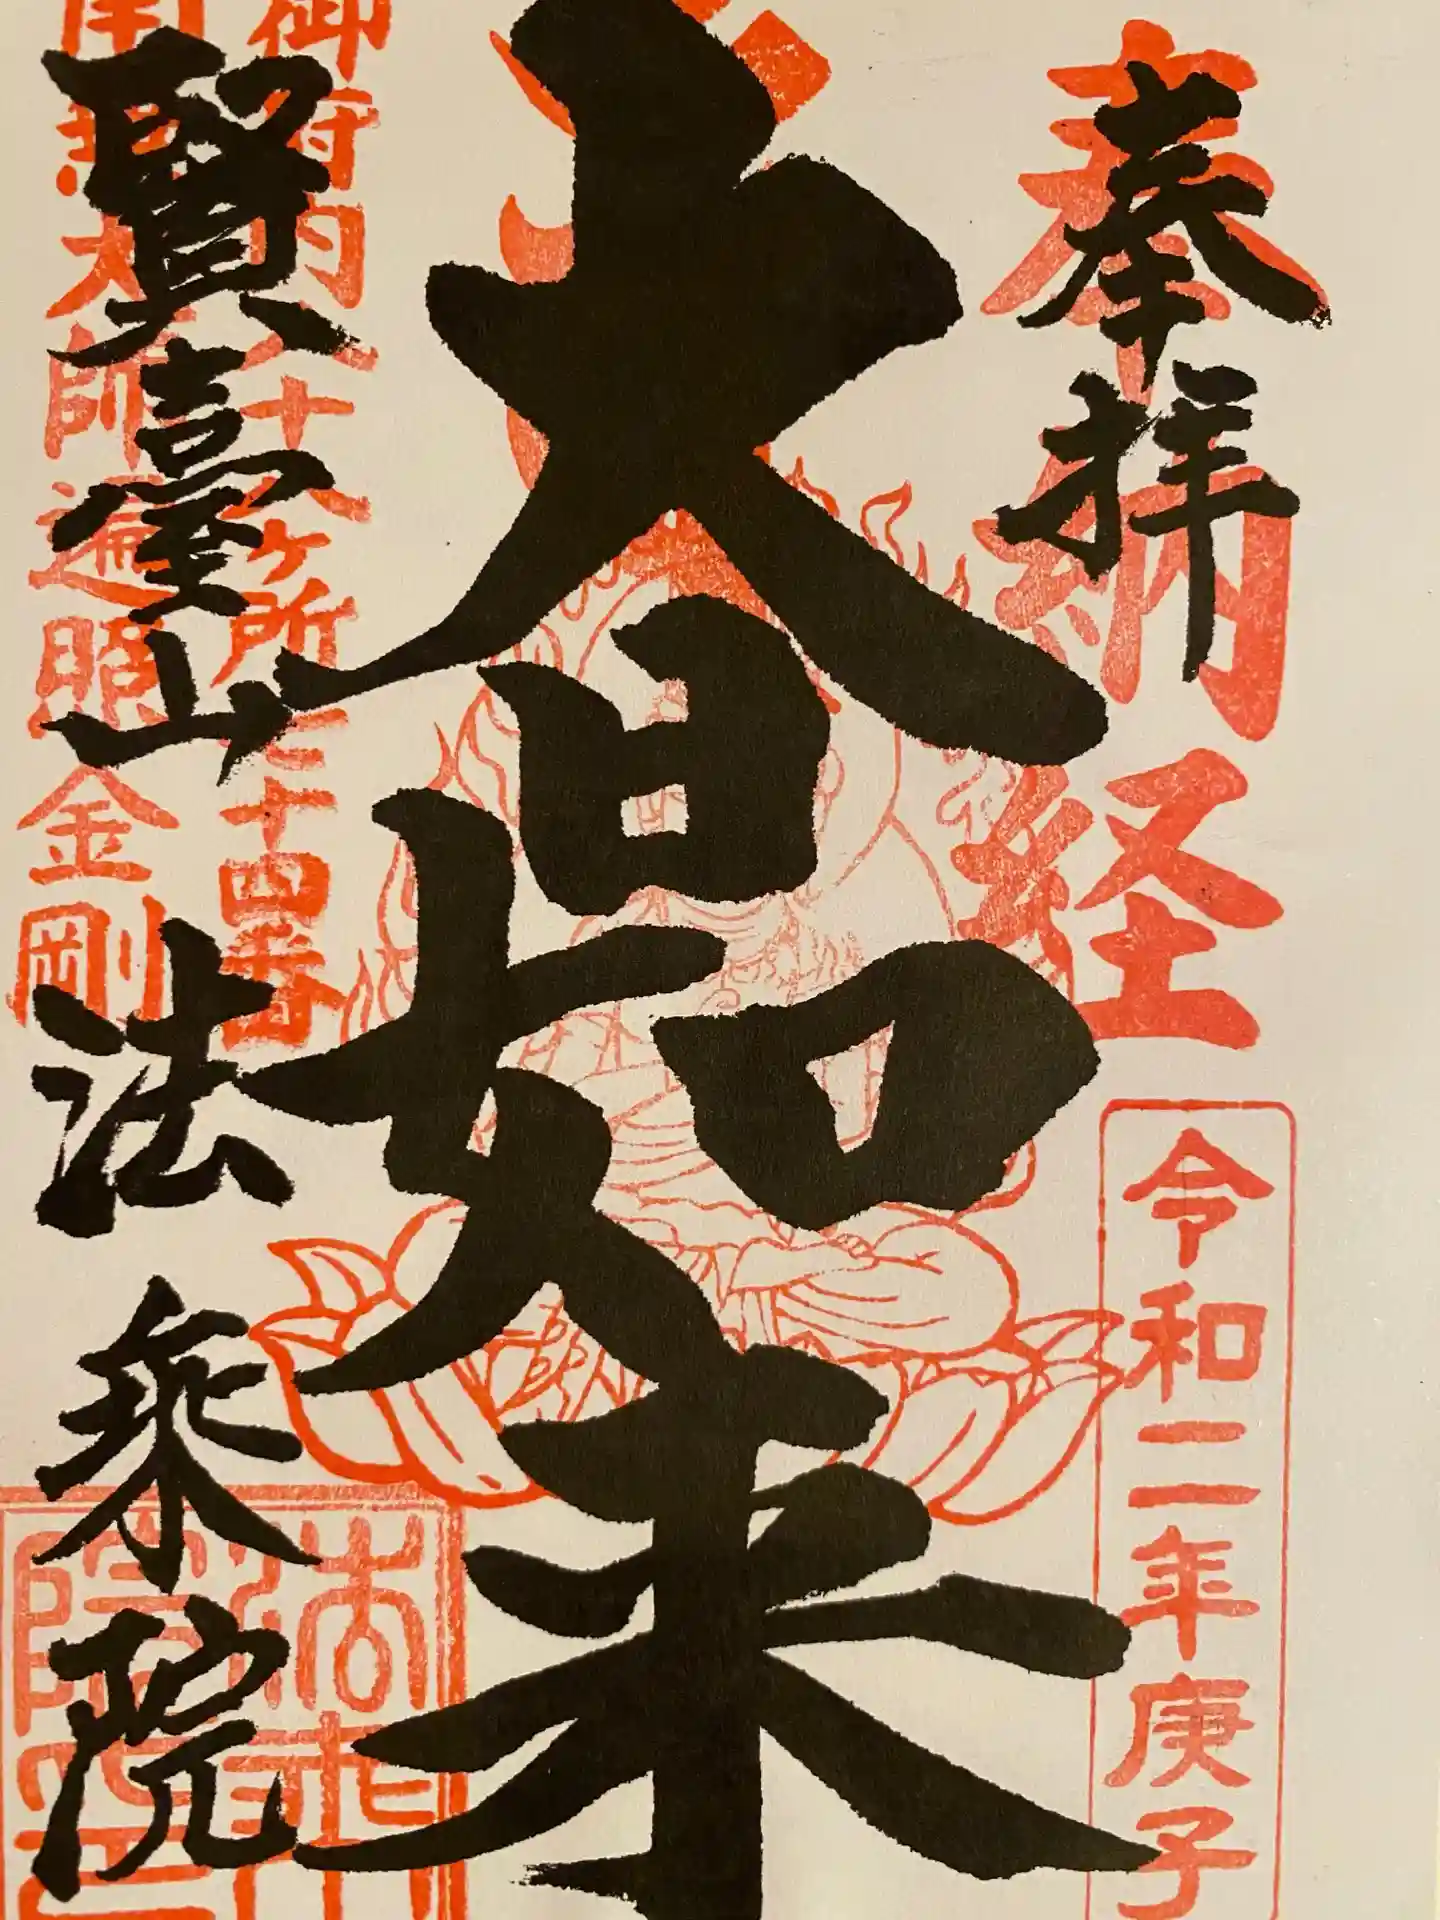 奉拝
奉納経
令和二年庚子
大日如来
御府内八十八ヶ所二十四番
賢臺山 法乗院
南無大師遍照金剛